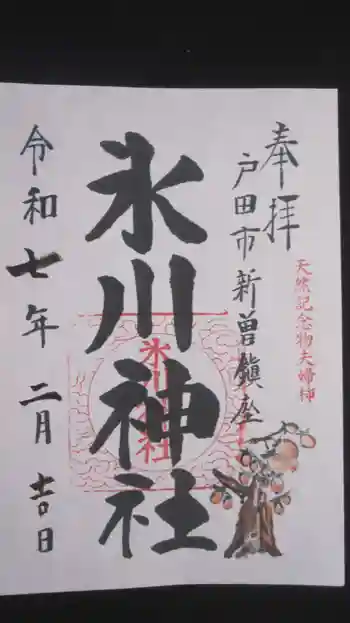 奉拝
天然記念物夫婦柿
戸田市新曽鎮座
氷川神社
氷川神社
令和七年二月吉日